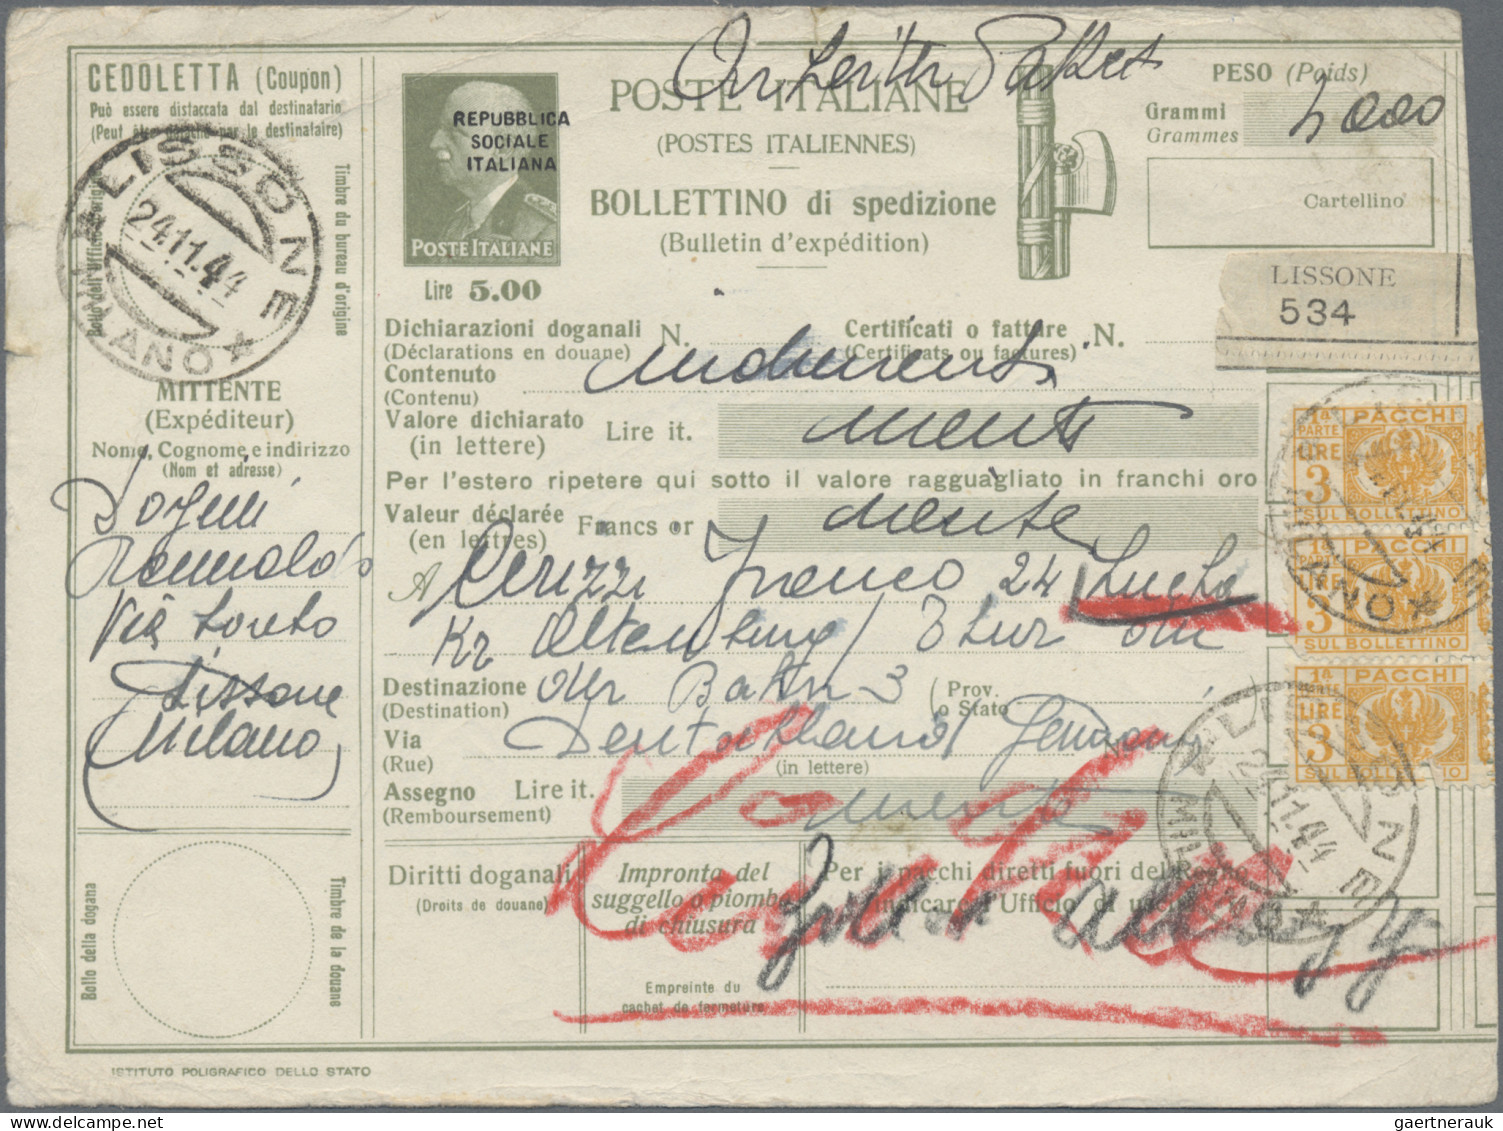 CEDOLETTA (Coupon)
Può essere distaccata dal destinatario
(Peut être par le destinataire)
Bollo dell'Ufficio
Timbre du bureau d'origine
LISSONE
24.11.44
MILANO
MITTENTE
(Expéditeur)
Nome, Cognome e indirizzo
(Nom et adresse)
Romualdo
Via Loreto
Lissone
Milano
Bollo della dogana
Timbre de la douane
REPUBBLICA
SOCIALE
ITALIANA
POSTE ITALIANE
Lire 5.00
POSTE ITALIANE
(POSTES ITALIENNES)
BOLLETTINO di spedizione
(Bulletin d'expédition)
PESO (Poids)
Grammi
Grammes
Cartellino
LISSONE
534
Dichiarazioni doganali N.
(Déclarations en douane)
Certificati o fatture N.
(Certificats ou factures)
Contenuto
(Contenu)
indumenti
Valore dichiarato
(in lettere)
Lire it.
niente
Per l'estero ripetere qui sotto il valore ragguagliato in franchi oro
Valeur déclarée
(en lettres)
Francs or
niente
A Franco 24
Kr Altenburg / Thur
Destinazione
(Destination)
der Bahn 3
(Prov.
o Stato
Via
(Rue)
Deutschland
(in lettere)
Assegno
(Remboursement)
Lire it.
niente
Diritti doganali
(Droits de douane)
Impronta del
suggello o piombo
di chiusura
Empreinte du
cachet de fermeture
Per i pacchi diretti fuori del Regno
indicare l'Ufficio di
1ª PARTE
PACCHI
LIRE
3
SUL BOLLETTINO
1ª PARTE
PACCHI
LIRE
3
SUL BOLLETTINO
1ª PARTE
PACCHI
LIRE
3
SUL BOLLETTINO
MILANO
LISSONE
24.11.44
MILANO
ISTITUTO POLIGRAFICO DELLO STATO
gaertnerauk @ delcampe.net